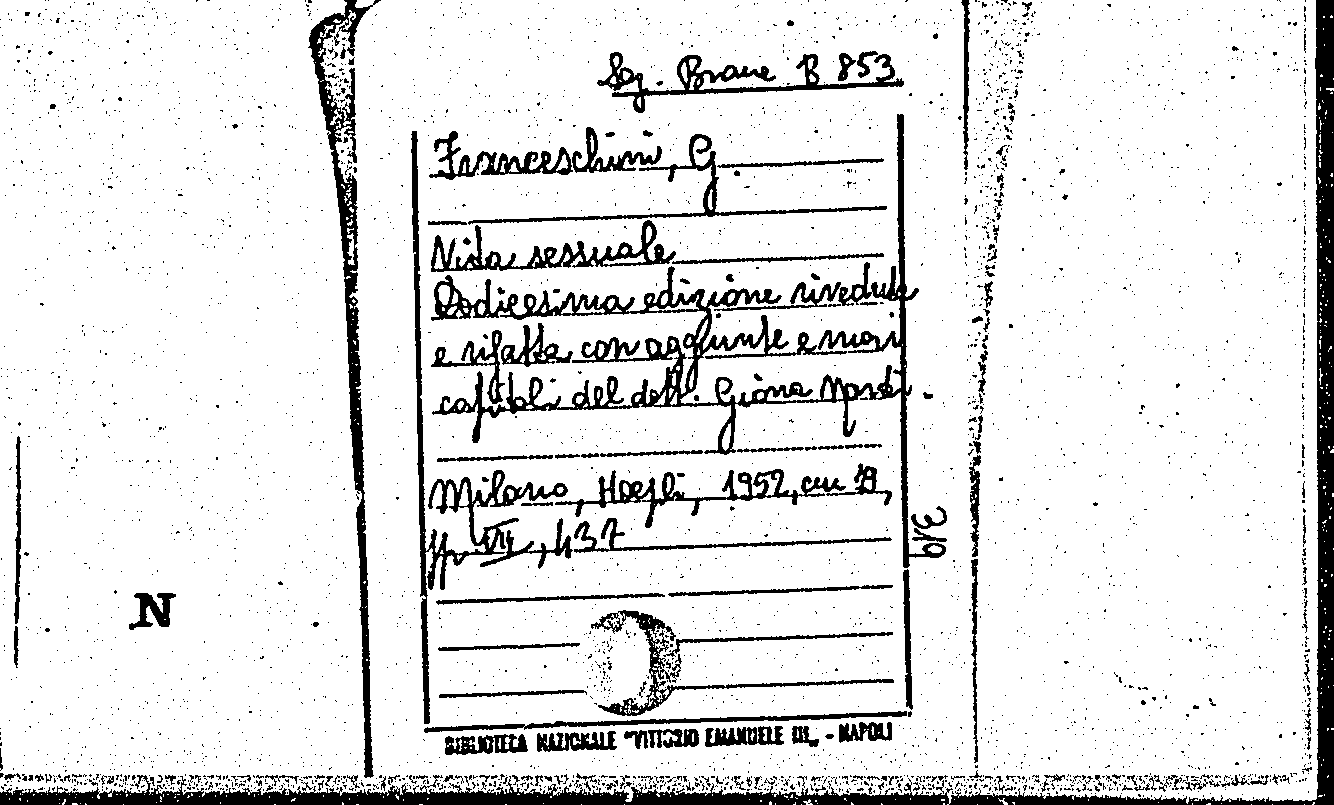 Sg. Brane B 853
Franceschini, G.
Vita sessuale
Dodicesima edizione riveduta
e rifatta con aggiunte e nuovi
capitoli del dott. Giona Nardi.
Milano, Hoepli, 1952, cm 19,
pp VIII, 437
319
N
BIBLIOTECA NAZIONALE "VITTORIO EMANUELE III„ - NAPOLI